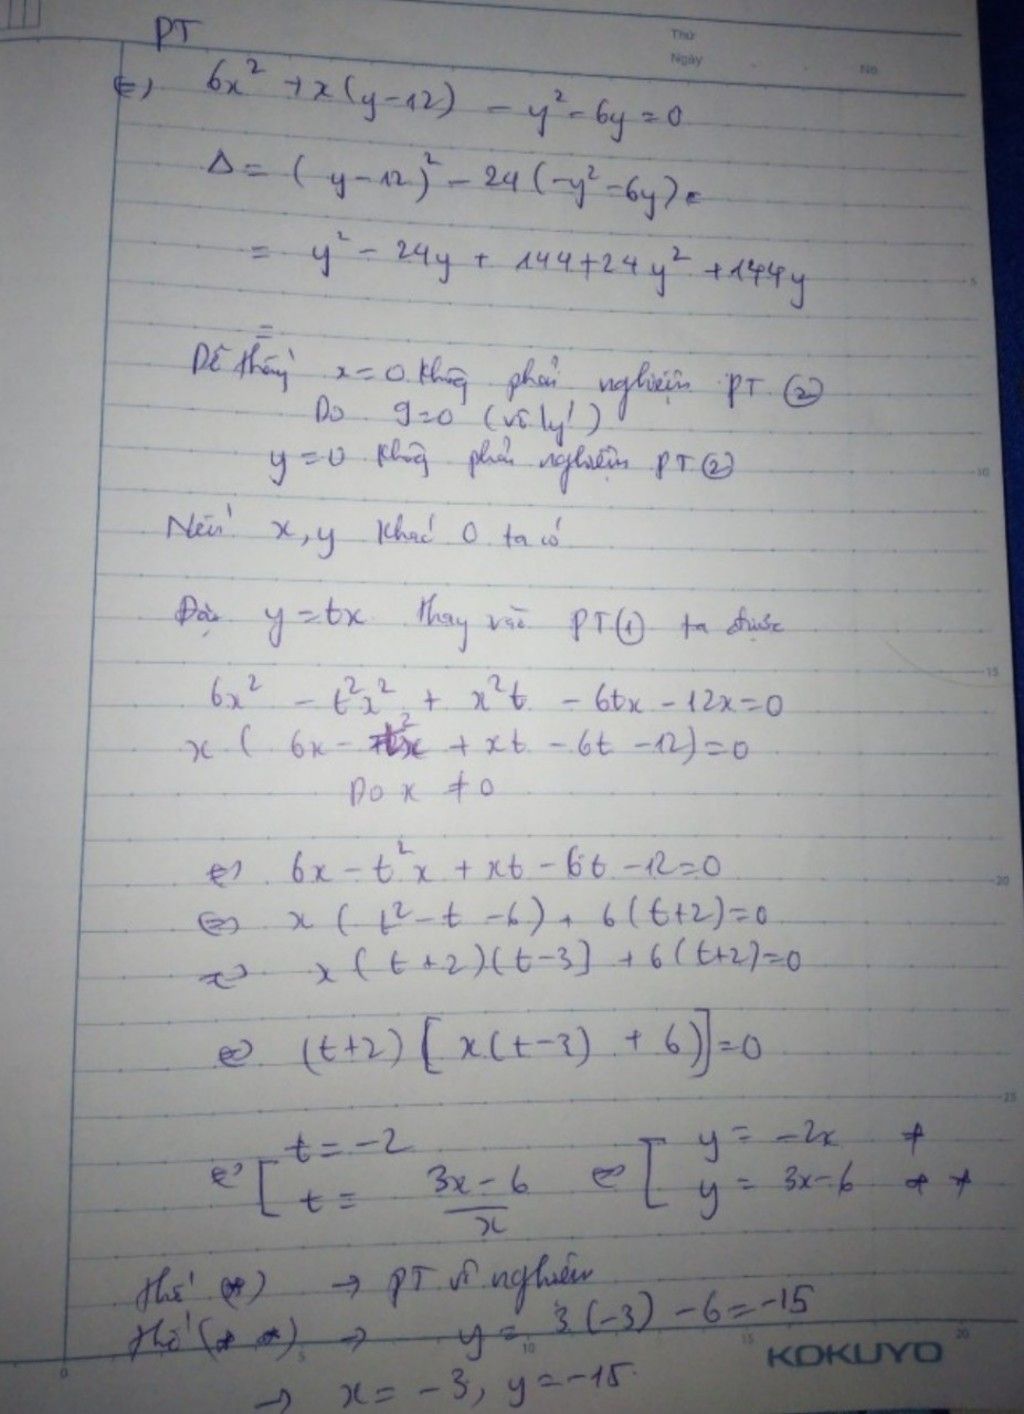 PT
Thứ
Ngày
No
⇔) 6x² + x(y-12) - y² - 6y = 0
Δ = (y-12)² - 24(-y² - 6y)
= y² - 24y + 144 + 24y² + 144y
=
Dễ thấy x = 0 không phải nghiệm PT (2)
Do 9=0 (vô lý)
y = 0 không phải nghiệm PT (2)
Nếu x, y khác 0 ta có
Đặt y = tx thay vào PT(1) ta được
6x² - t²x² + x²t - 6tx - 12x = 0
x ( 6x - t²x + xt - 6t - 12) = 0
Do x ≠ 0
⇔ 6x - t²x + xt - 6t - 12 = 0
⇔ x ( t² - t - 6) + 6(t+2) = 0
⇔ x ( t + 2)(t - 3) + 6(t+2) = 0
⇔ (t+2) [ x(t-3) + 6)] = 0
⇔ [ t = -2 ⇔ [ y = -2x *
t = (3x - 6)/x y = 3x - 6 * *
Thế (*) → PT vô nghiệm
Thế (* *) → y = 3(-3) - 6 = -15
→ x = -3, y = -15
5
10
15
20
25
0
5
10
15
20
KOKUYO